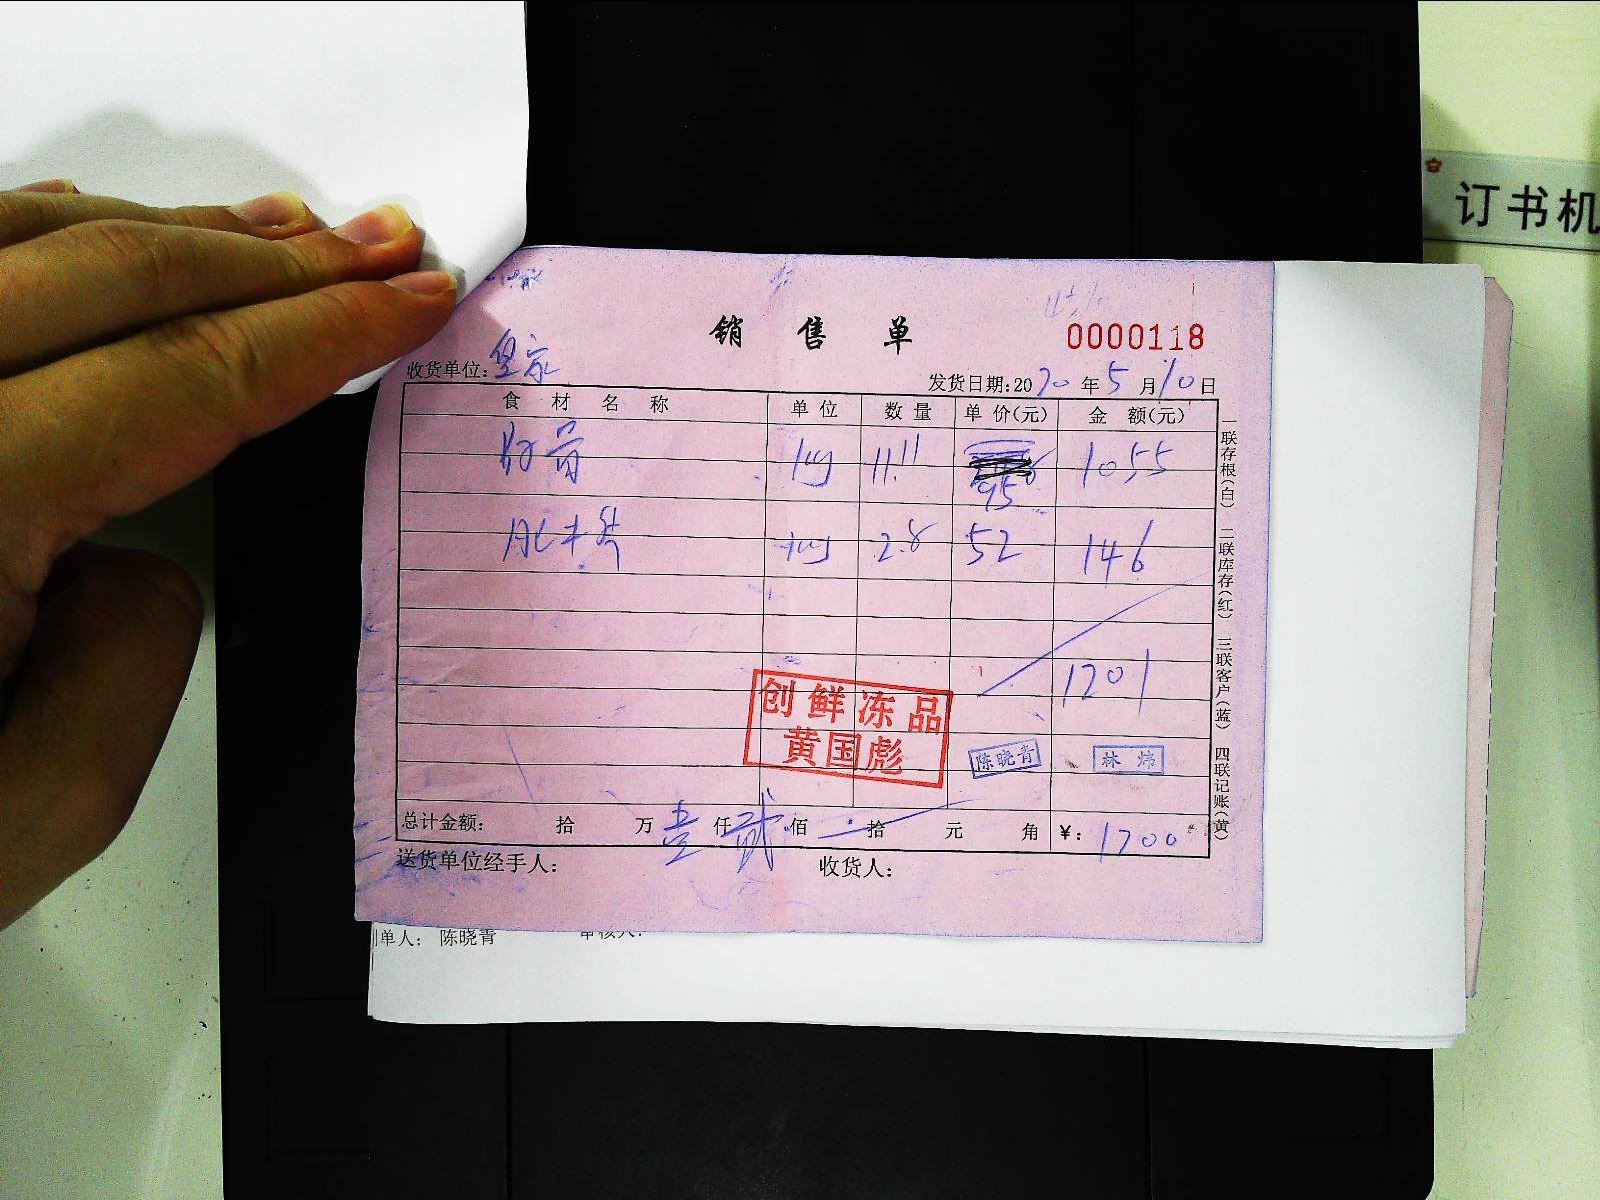 订书机
销售单
0000118
收货单位:皇家
发货日期:2020年5月10日
食材名称 单位 数量 单价(元) 金额(元)
kg 11.11 95 1055
肥牛 kg 2.8 52 146
1201
创鲜冻品
黄国彪
陈晓青 林炜
总计金额: 拾 万 壹仟贰佰 拾 元 角 ¥:1200
送货单位经手人: 收货人:
一联存根(白) 二联库存(红) 三联客户(蓝) 四联记账(黄)
单人: 陈晓青 审核人: